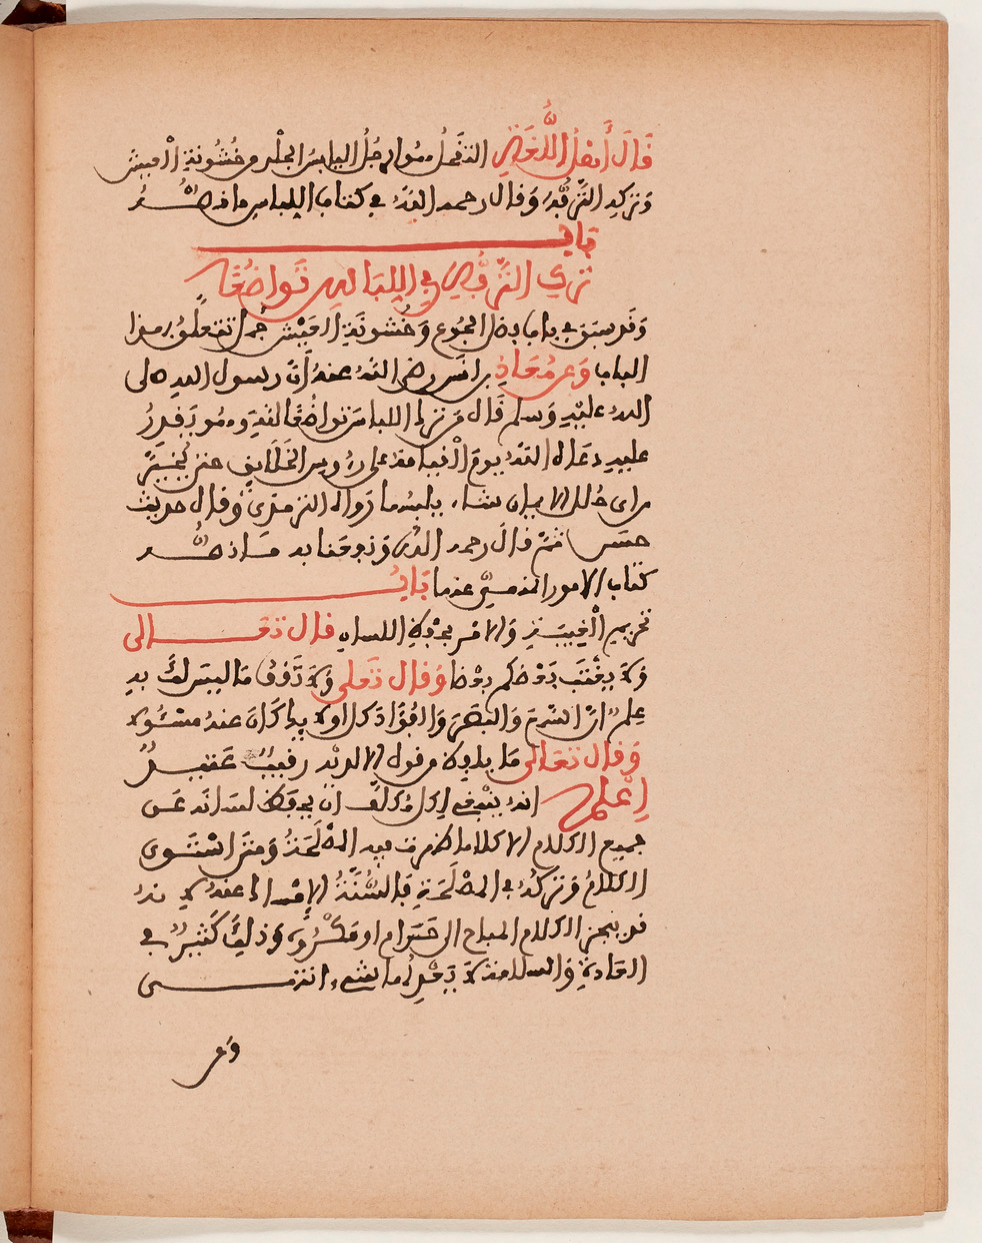 قَالَ أَهْلُ اللُّغَةِ التقحل هو الرجُلُ اليابس الجلد من خُشُونَةِ الْعيش
وَتركه التَّرَفُّهَ وَقال رحمه اللهُ في كتاب اللباس ما نصُّـــهُ
بَابُ
ترك التَّرَفُّعِ في اللِّبَاسِ تَوَاضُعًا
وَقد سبق في باب فضل الجُوع وَخُشُونَةِ العَيْشِ جُمل تتعلَّقُ بهذا
الباب وَعن مُعَاذِ بن انس رضي اللهُ عنهُ أَنَّ رسول الله صلى
اللهُ عليْهِ وَسلم قَال مَن ترك اللباسَ تواضُعًا للهِ وهُو يَقْدِرُ
عليهِ دعَاه اللهُ يومَ الْقيامة على رءُوس الخَلَائِقِ حتى يُخيّرَ
من اي حُلل الايمان شاء يلبسُها رَواه الترمذيُّ وقال حديث
حسن ثمَّ قالَ رحمه اللهُ وَنفعَنا به مَا نصُّـــهُ
كتاب الامور المنهيِّ عنها بَابُ
تحريمِ الْغِيبَـةِ وَالامْر بحفظِ اللسان قال تعَـــالى
وَلَا يغْتَب بَعْضكم بعْضا وَقال تَعلى وَلَا تَقْفُ مَا ليسَ لَكَ بهِ
عِلمٌ انَّ السَّمْعَ وَالبَصَرَ وَالفُؤَادَ كل اولَائِكَ كَانَ عنهُ مسْئُولا
وَقال تعَالى مَا يلفظ من قول الا لديْه رقيبٌ عَتيــدٌ
اِعْلم انهُ ينْبَغي لكل مُكلَّف انْ يحفظ لسَانَه عَن
جميع الكلام الا كلاما ظهرت فيه المصْلَحَةُ وَمتَى اسْتَوى
الكلامُ وَتركُهُ في المصْلَحَةِ فَالسُّنَّةُ الامْساك عنهُ لانهُ
قد ينجر الكلام المباح الى حَرام او مَكْرُوهٍ وَذلكَ كَثيرٌ في
العَادةِ وَالسلامة لَا يَعْدِلُها شيء انتهـــى
وعن